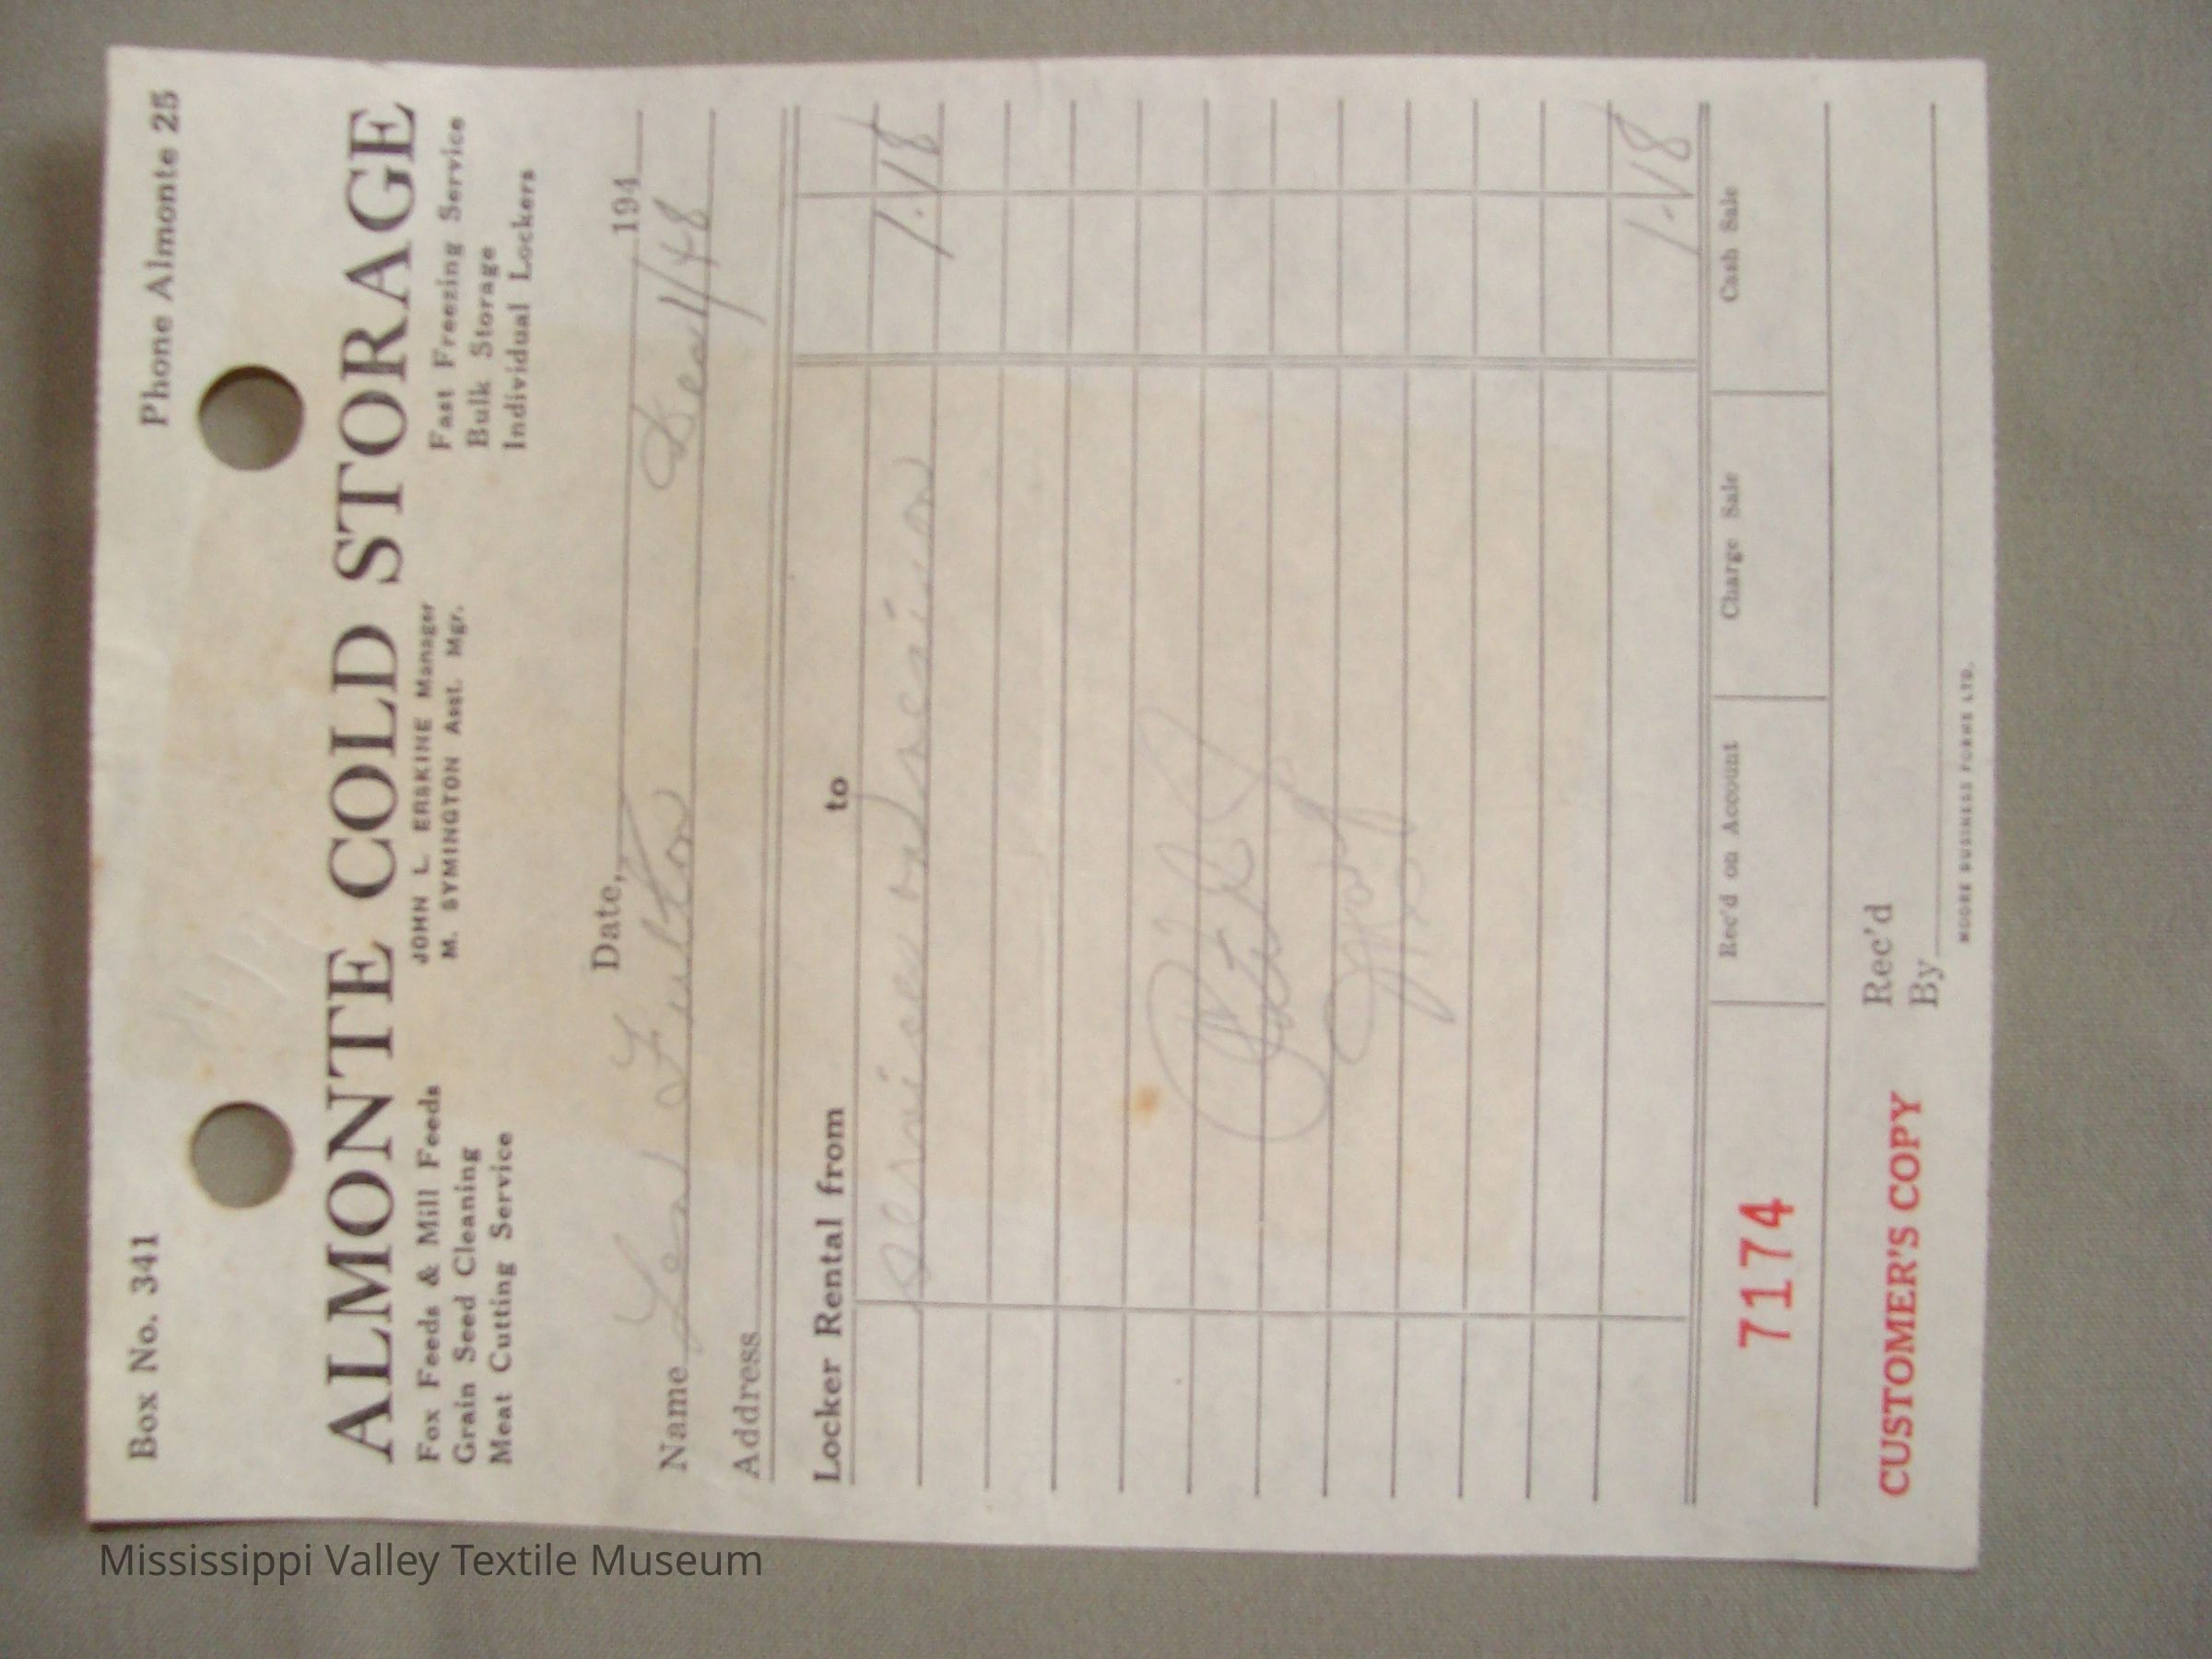 Box No. 341 Phone Almonte 25
ALMONTE COLD STORAGE
Fox Feeds & Mill Feeds
Grain Seed Cleaning
Meat Cutting Service
JOHN L. ERSKINE Manager
M. SYMINGTON Asst. Mgr.
Fast Freezing Service
Bulk Storage
Individual Lockers
Date, 194
Name Len Fulton Dec 1/48
Address
Locker Rental from to
services on venison 1.18
1.18
7174 Rec'd on Account Charge Sale Cash Sale
CUSTOMER'S COPY Rec'd
By
MOORE BUSINESS FORMS LTD.
Mississippi Valley Textile Museum